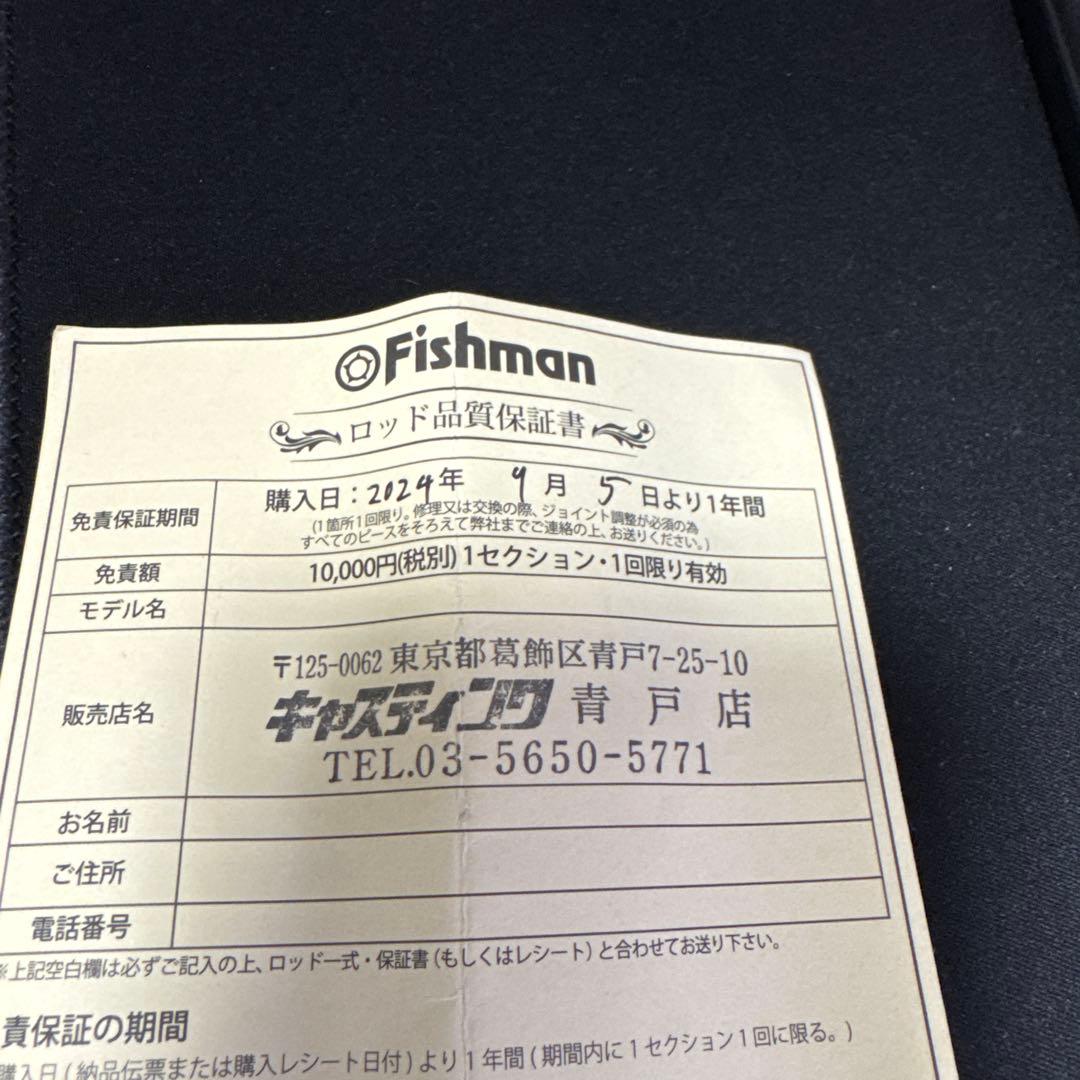 Fishman
ロッド品質保証書
免責保証期間
購入日：2024年 9月 5日より1年間
(1箇所1回限り。修理又は交換の際、ジョイント調整が必須の為
すべてのピースをそろえて弊社までご連絡の上、お送りください。)
免責額
10,000円(税別) 1セクション・1回限り有効
モデル名
販売店名
〒125-0062 東京都葛飾区青戸7-25-10
キャスティング 青戸店
TEL.03-5650-5771
お名前
ご住所
電話番号
※上記空白欄は必ずご記入の上、ロッド一式・保証書（もしくはレシート）と合わせてお送り下さい。
責保証の期間
購入日(納品伝票または購入レシート日付)より1年間(期間内に1セクション1回に限る。)